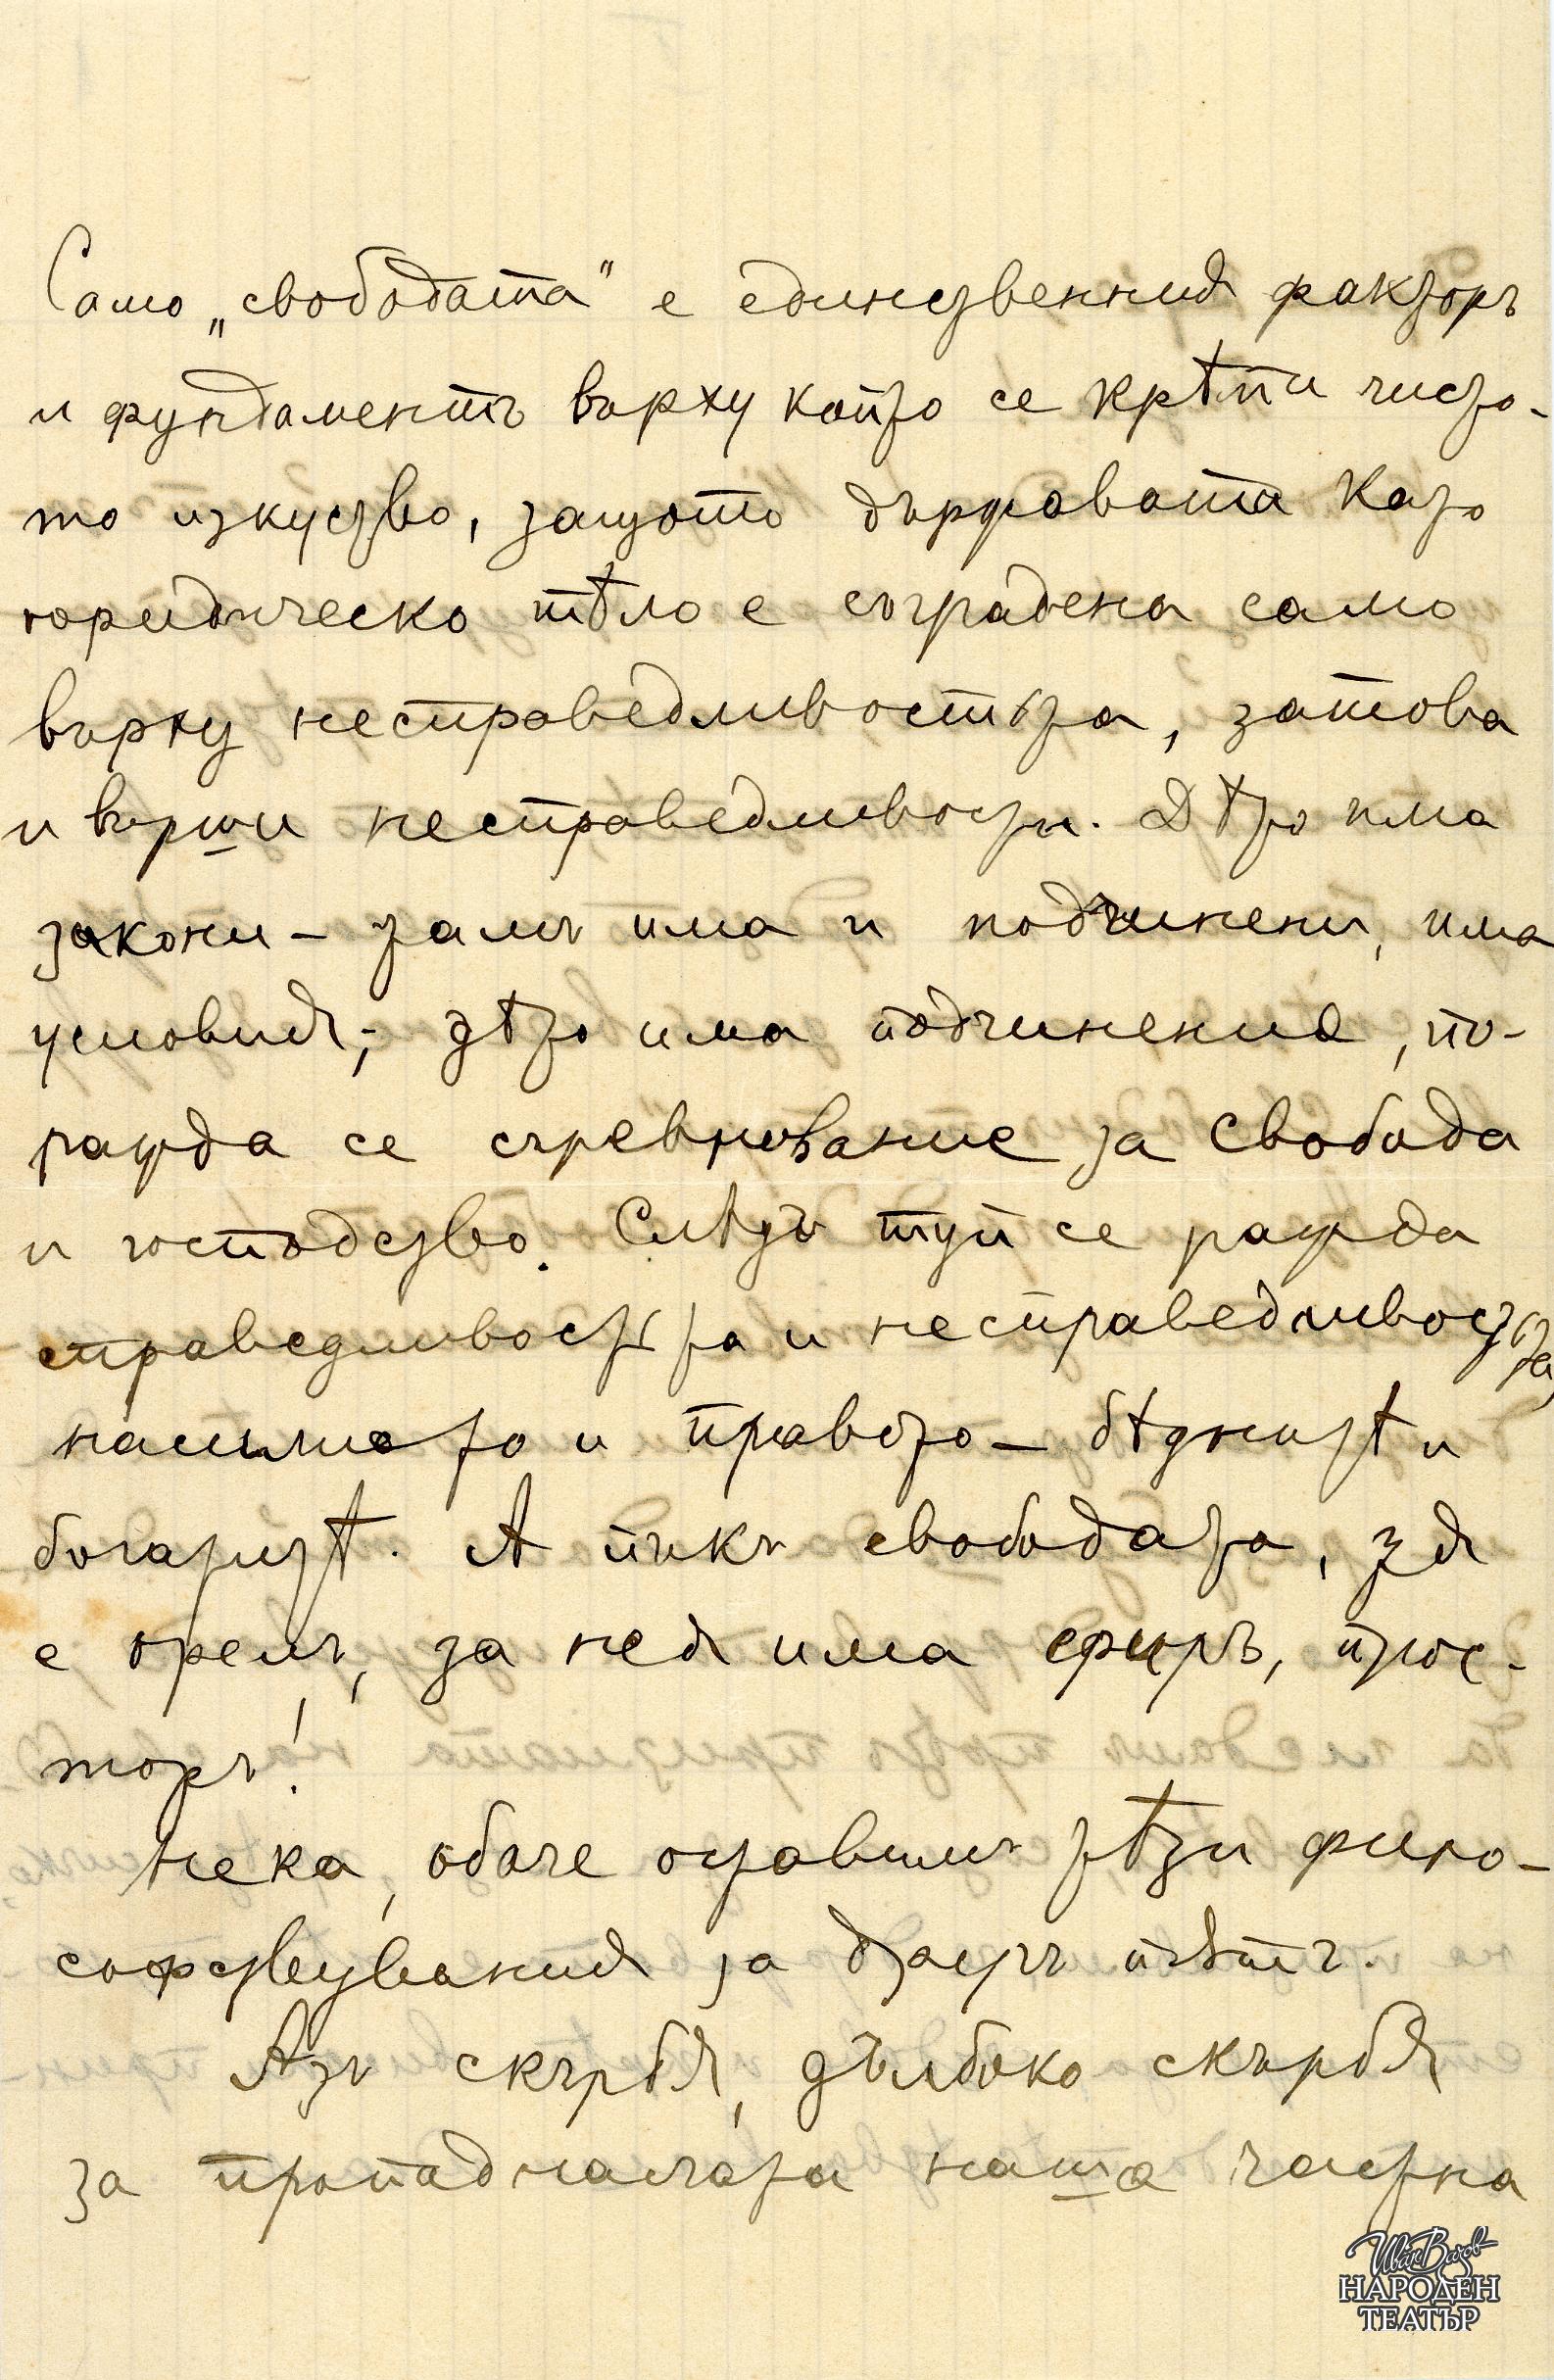 Само „свободата“ е единствения факторъ
и фундаментъ върху който се крѣпи чисто-
то изкуство, защото държавата като
юридическо тѣло е съградена само
върху несправедливостьта, затова
и върши несправедливости. Дѣто има
закони – тамъ има и подчинени, има
условия; – дѣто има подчинение, по-
ражда се съревнование за свобода
и господство. Слѣдъ туй се ражда
справедливостьта и несправедливостьта,
насилието и правото – бѣднитѣ и
богатитѣ. А пъкъ свободата, тя
е орелъ, за нея има ефиръ, прос-
торъ!
Нека, обаче оставимъ тѣзи фило-
софствувания за другъ пѫть.
Азъ скърбя, дълбоко скърбя
за пропадналата наша частна
Иван Вазов
НАРОДЕН
ТЕАТЪР